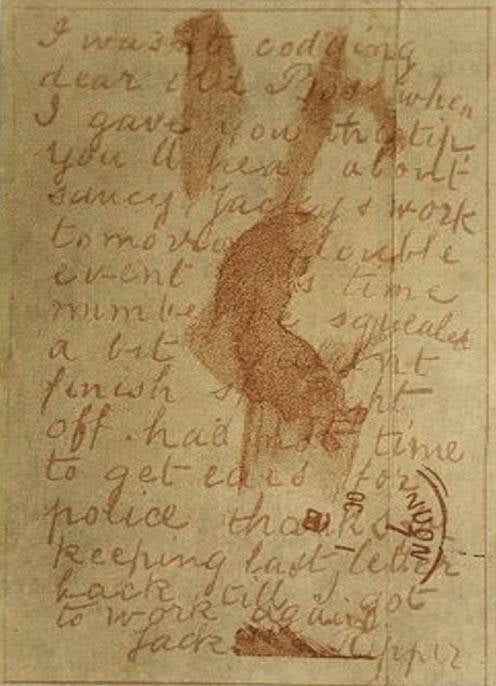 I wasn't codding
dear old Boss when
I gave you the tip.
you'll hear about
saucy Jackys work
tomorrow double
event time
number squealed
a bit
finish
off. had not time
to get ears for
police thanks
keeping last letter
back till I got
to work again
Jack Ripper
OC 1